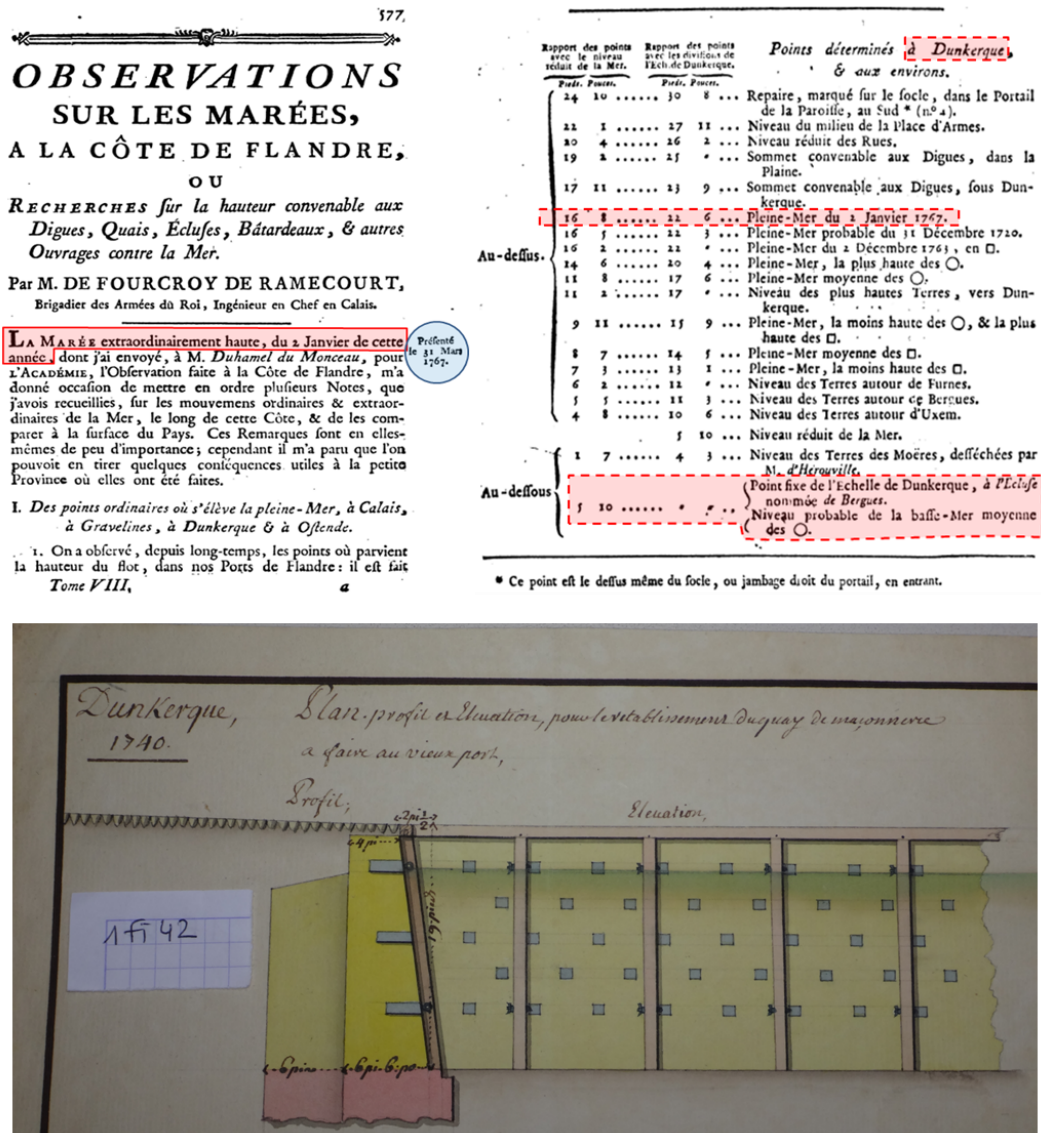 577
OBSERVATIONS
SUR LES MARÉES,
A LA CÔTE DE FLANDRE,
OU
RECHERCHES ſur la hauteur convenable aux
Digues, Quais, Écluſes, Bâtardeaux, & autres
Ouvrages contre la Mer.
Par M. DE FOURCROY DE RAMECOURT,
Brigadier des Armées du Roi, Ingénieur en Chef en Calais.
LA MARÉE extraordinairement haute, du 2 Janvier de cette
année, dont j'ai envoyé, à M. Duhamel du Monceau, pour
L'ACADÉMIE, l'Obſervation faite à la Côte de Flandre, m'a
donné occaſion de mettre en ordre pluſieurs Notes, que
j'avois recueillies, ſur les mouvemens ordinaires & extraor-
dinaires de la Mer, le long de cette Côte, & de les com-
parer à la ſurface du Pays. Ces Remarques ſont en elles-
mêmes de peu d'importance; cependant il m'a paru que l'on
pouvoit en tirer quelques conſéquences utiles à la petite
Province où elles ont été faites.
Préſenté
le 31 Mars
1767.
I. Des points ordinaires où s'élève la pleine-Mer, à Calais,
à Gravelines, à Dunkerque & à Oſtende.
1. On a obſervé, depuis long-temps, les points où parvient
la hauteur du flot, dans nos Ports de Flandre: il eſt fait
Tome VIII, a
Rapport des points
avec le niveau
réduit de la Mer.
Rapport des points
avec les diviſions de
l'Ech. de Dunkerque.
Points déterminés à Dunkerque,
& aux environs.
Pieds. Pouces. Pieds. Pouces.
Au-deſſus.
24 10 ...... 30 8 ... Repaire, marqué ſur le ſocle, dans le Portail
de la Paroiſſe, au Sud * (n.º 4).
22 1 ...... 27 11 ... Niveau du milieu de la Place d'Armes.
20 4 ...... 26 2 ... Niveau réduit des Rues.
19 2 ...... 25 " ... Sommet convenable aux Digues, dans la
Plaine.
17 11 ...... 23 9 ... Sommet convenable aux Digues, ſous Dun-
kerque.
16 8 ...... 22 6 ... Pleine-Mer du 2 Janvier 1767.
16 5 ...... 22 3 ... Pleine-Mer probable du 31 Décembre 1720.
16 2 ...... 22 " ... Pleine-Mer du 2 Décembre 1763, en □.
14 6 ...... 20 4 ... Pleine-Mer, la plus haute des ○.
11 8 ...... 17 6 ... Pleine-Mer moyenne des ○.
11 2 ...... 17 " ... Niveau des plus hautes Terres, vers Dun-
kerque.
9 11 ...... 15 9 ... Pleine-Mer, la moins haute des ○, & la plus
haute des □.
8 7 ...... 14 5 ... Pleine-Mer moyenne des □.
7 3 ...... 13 1 ... Pleine-Mer, la moins haute des □.
6 2 ...... 12 " ... Niveau des Terres autour de Furnes.
5 5 ...... 11 3 ... Niveau des Terres autour de Bergues.
4 8 ...... 10 6 ... Niveau des Terres autour d'Uxem.
5 10 ... Niveau réduit de la Mer.
Au-deſſous
1 7 ...... 4 3 ... Niveau des Terres des Moëres, deſſéchées par
M. d'Hérouville.
5 10 ...... " " ... Point fixe de l'Echelle de Dunkerque, à l'Ecluſe
nommée de Bergues.
Niveau probable de la baſſe-Mer moyenne
des ○.
* Ce point eſt le deſſus même du ſocle, ou jambage droit du portail, en entrant.
Dunkerque,
1740.
Plan-profil et Elevation, pour le retablissement du quay de maçonnerie
a faire au vieux port,
Profil;
Elevation,
2 pi 1/2
4 pi
19 pieds
1 Fi 42
6 pi 6 po